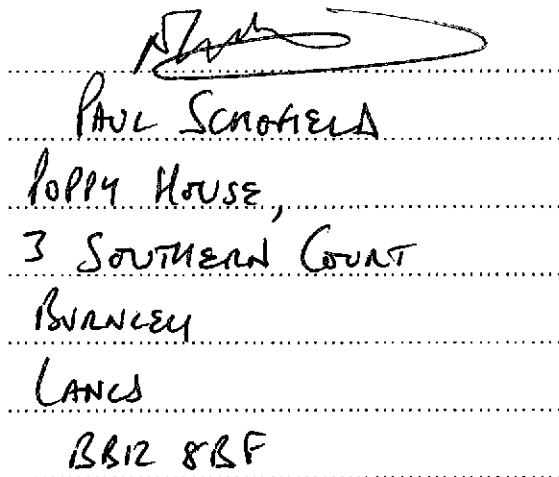 PAUL SCHOFIELD
POPPY HOUSE,
3 SOUTHERN COURT
BURNLEY
LANCS
BB12 8BF